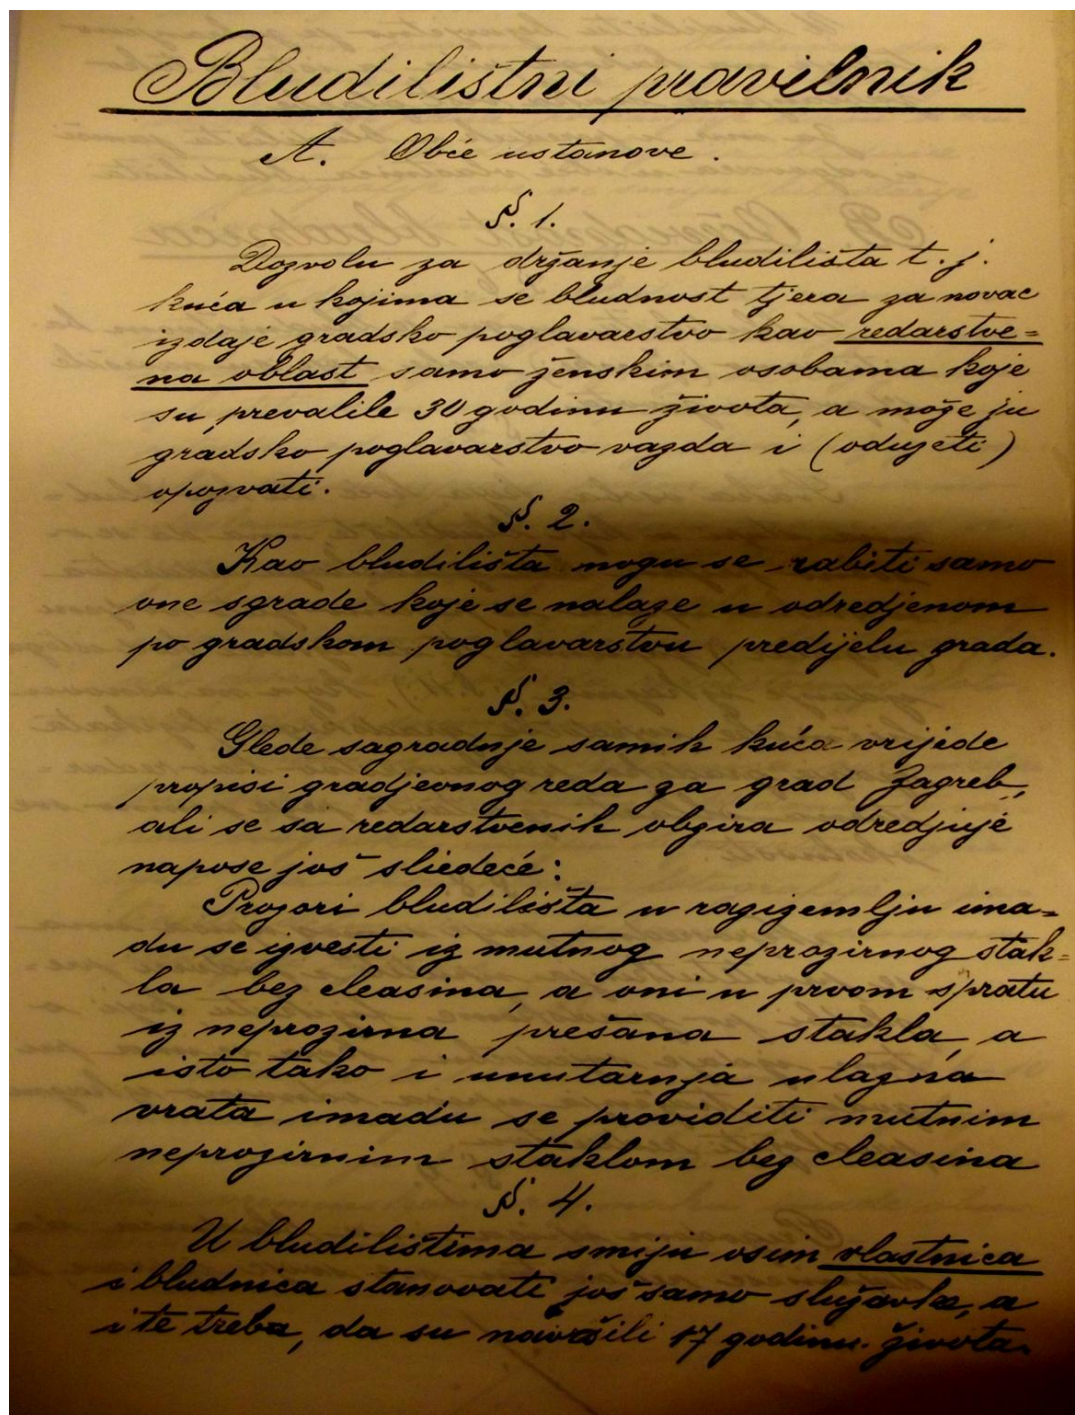 Bludilištni pravilnik
A. Obće ustanove.
§. 1.
Dozvolu za držanje bludilišta t. j.
kuća u kojima se bludnost tjera za novac
izdaje gradsko poglavarstvo kao redarstve=
na oblast samo ženskim osobama koje
su prevalile 30 godinu života, a može ju
gradsko poglavarstvo vazda i (oduzeti)
opozvati.
§. 2.
Kao bludilišta mogu se rabiti samo
one sgrade koje se nalaze u odredjenom
po gradskom poglavarstvu predijelu grada.
§. 3.
Glede sagradnje samih kuća vrijede
propisi gradjevnog reda za grad Zagreb,
ali se sa redarstvenih obzira odredjuje
napose još sliedeće:
Prozori bludilišta u razizemlju ima=
du se izvesti iz mutnog neprozirnog stak=
la bez cleasina, a oni u prvom spratu
iz neprozirna prešana stakla, a
isto tako i unutarnja ulazna
vrata imadu se providiti mutnim
neprozirnim staklom bez cleasina
§. 4.
U bludilištima smiju osim vlastnica
i bludnica stanovati još samo služavke, a
i te treba, da su navršili 17 godinu života.